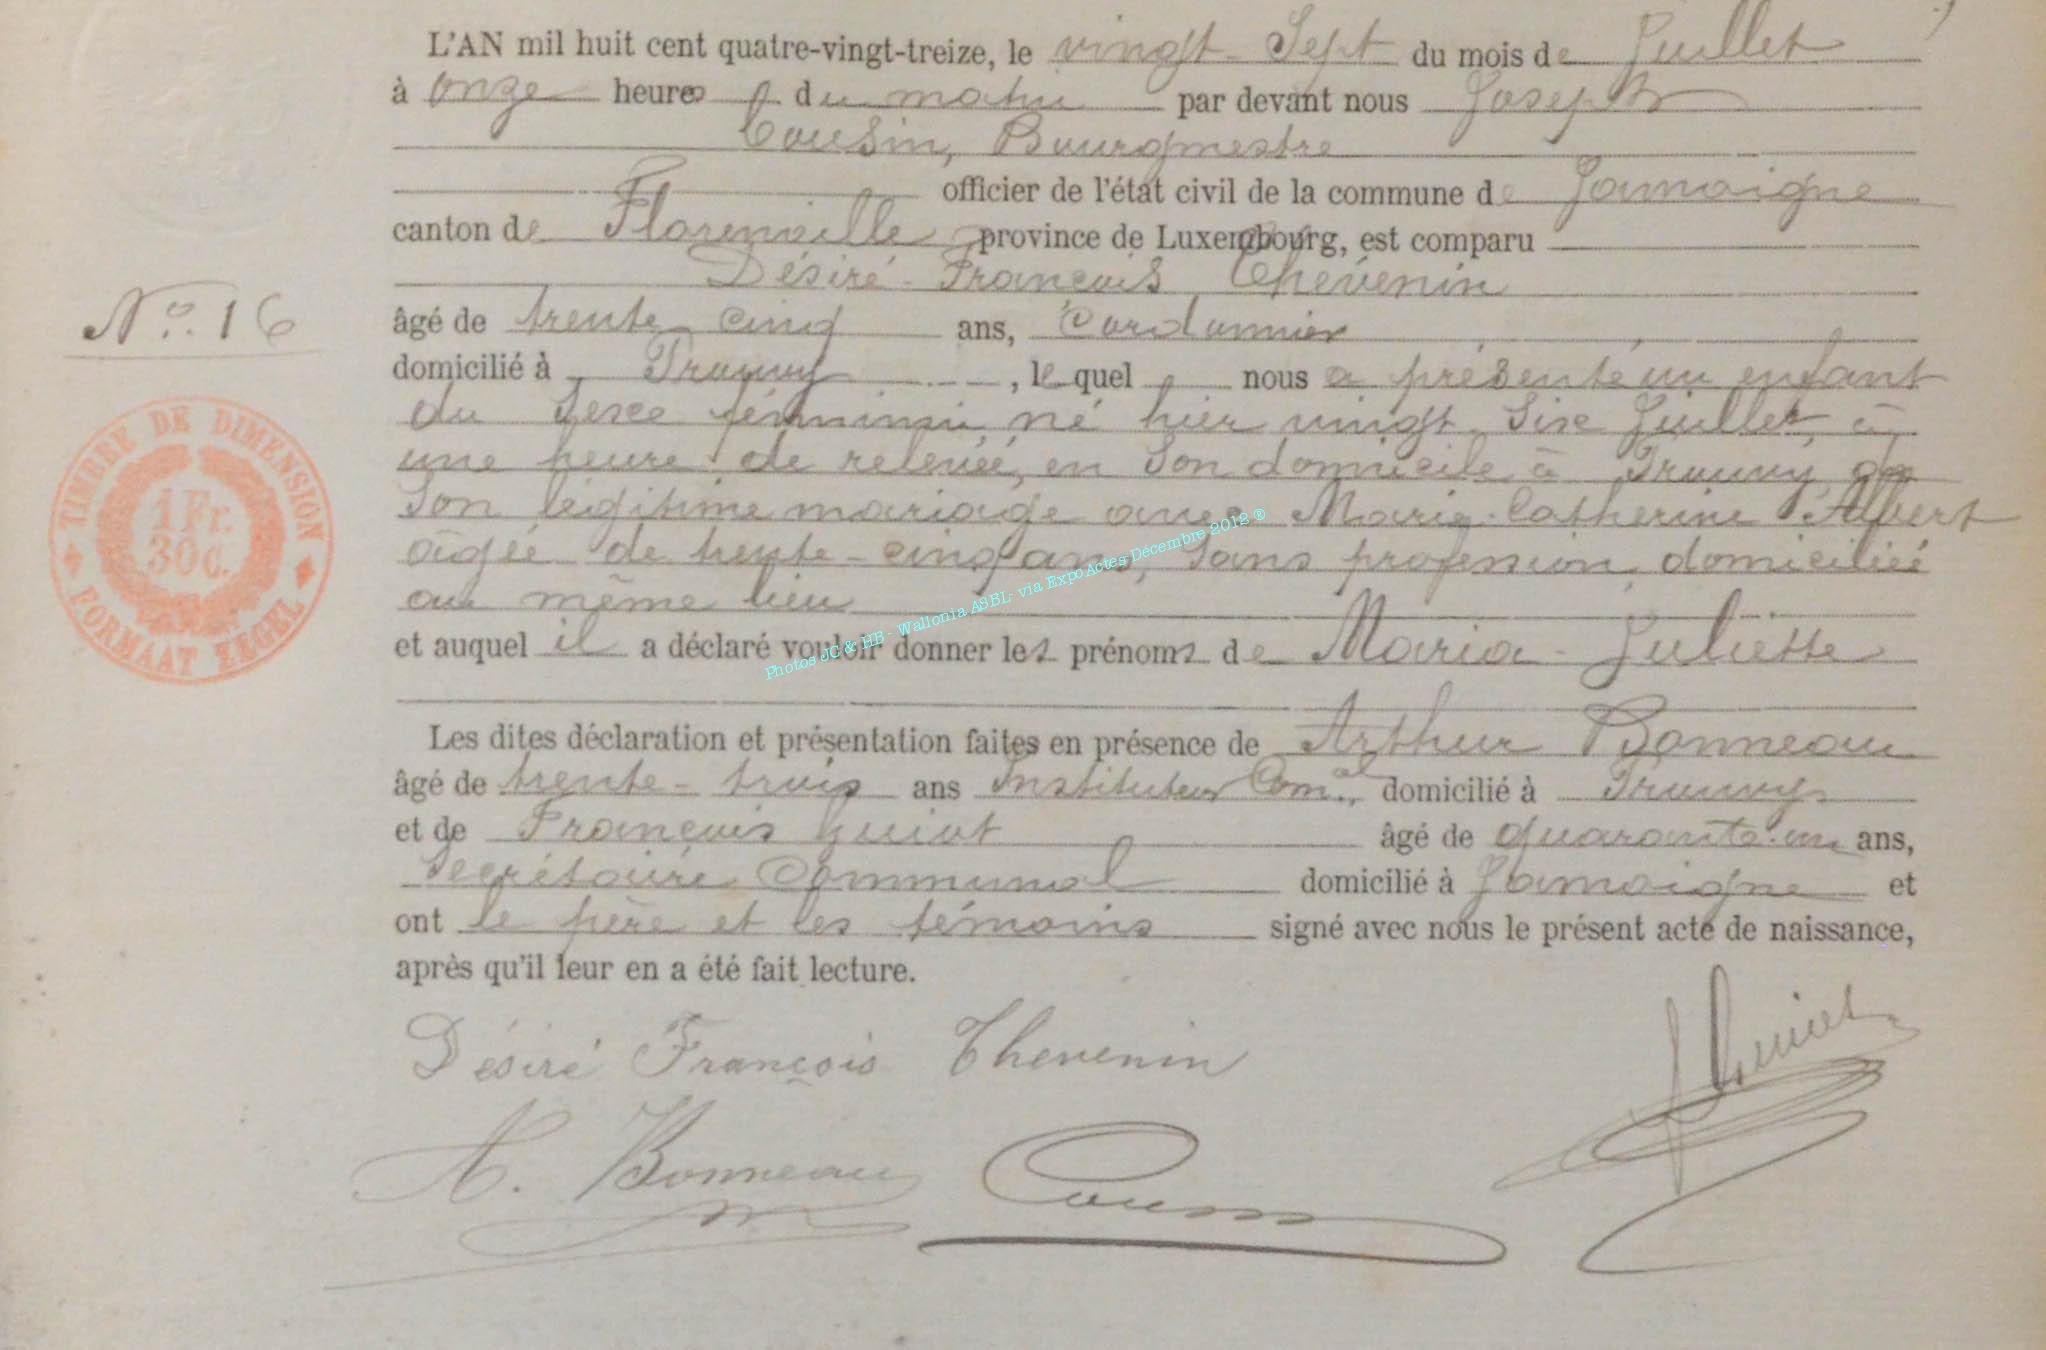 L'AN mil huit cent quatre-vingt-treize, le vingt-Sept du mois de Juillet
à onze heures du matin par devant nous Joseph
Cousin, Bourgmestre
officier de l'état civil de la commune de Jamoigne
canton de Florenville province de Luxembourg, est comparu
Désiré-François Thévenin
No. 16
âgé de trente cinq ans, Cordonnier
domicilié à Prouvy, le quel nous a présenté un enfant
du Sexe féminin, né hier vingt-Six Juillet, à
une heure de relevée, en Son domicile à Prouvy, de
Son légitime mariage avec Marie-Catherine Albert
âgée de trente-cinq ans, Sans profession, domiciliée
au même lieu
et auquel il a déclaré vouloir donner les prénoms de Maria-Juliette
Les dites déclaration et présentation faites en présence de Arthur Bonneau
âgé de trente-trois ans Instituteur Com.al domicilié à Prouvy
et de François Guiot âgé de quarante-un ans,
Secrétaire Communal domicilié à Jamoigne et
ont le père et les témoins signé avec nous le présent acte de naissance,
après qu'il leur en a été fait lecture.
Désiré François Thevenin
J Guiot
A. Bonneau Cousin
TIMBRE DE DIMENSION
1 Fr.
30 C.
FORMAAT ZEGEL
Photos JC & HB - Wallonia ASBL- via ExpoActes Décembre 2012 ®